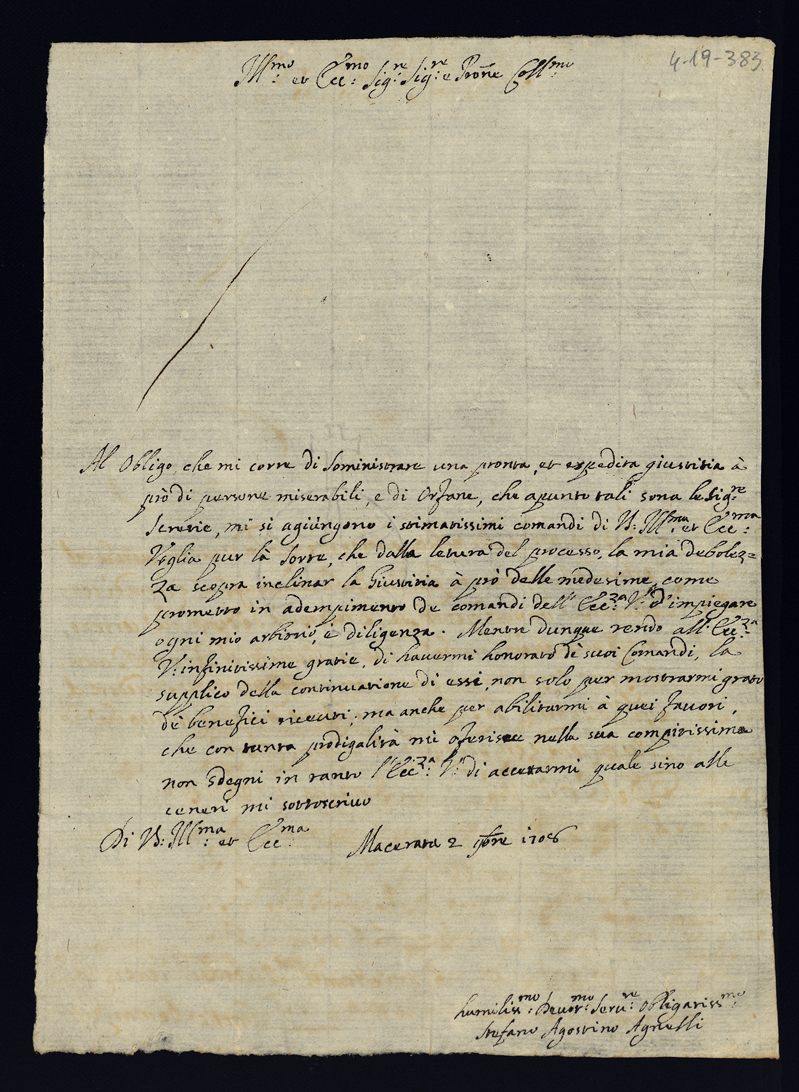 4-19-383
Ill:mo et Ecc:mo Sig:re Sig:re e Prone Coll:mo
Al Obligo, che mi corre di Soministrare una pronta, et expedita giustitia à
prò di persone miserabili, e di Orfane, che apunto tali sono le Sig:re
mi si agiùngono i stimatissimi comandi di V: Ill:ma et Ecc:ma
Voglia pur là Sorte, che dalla letura del processo, la mia debolez=
za scopra inclinar la Giustitia à prò delle medesime, come
prometto in adempimento de comandi dell' Ecc:za V:ra d'impiegare
ogni mio arbitrio, è diligenza. Mentre dunque rendo all' Ecc:za
V:ra infinitissime gratie, di havermi honorato de suoi Comandi, la
supplico della continuatione di essi, non solo per mostrarmi grato
de benefici ricevuti, ma anche per abilitarmi à quei favori,
che con tanta prodigalità mi oferisce nella sua compitissima
non sdegni in tanto l'Ecc:za V:ra di accettarmi quale sino alle
ceneri mi sottoscrivo
Di V: Ill:ma et Ecc:ma
Macerata 2 9bre 1706
humiliss:mo Devot:mo Serv:re Obligatiss:mo
Stefano Agostino Agnelli